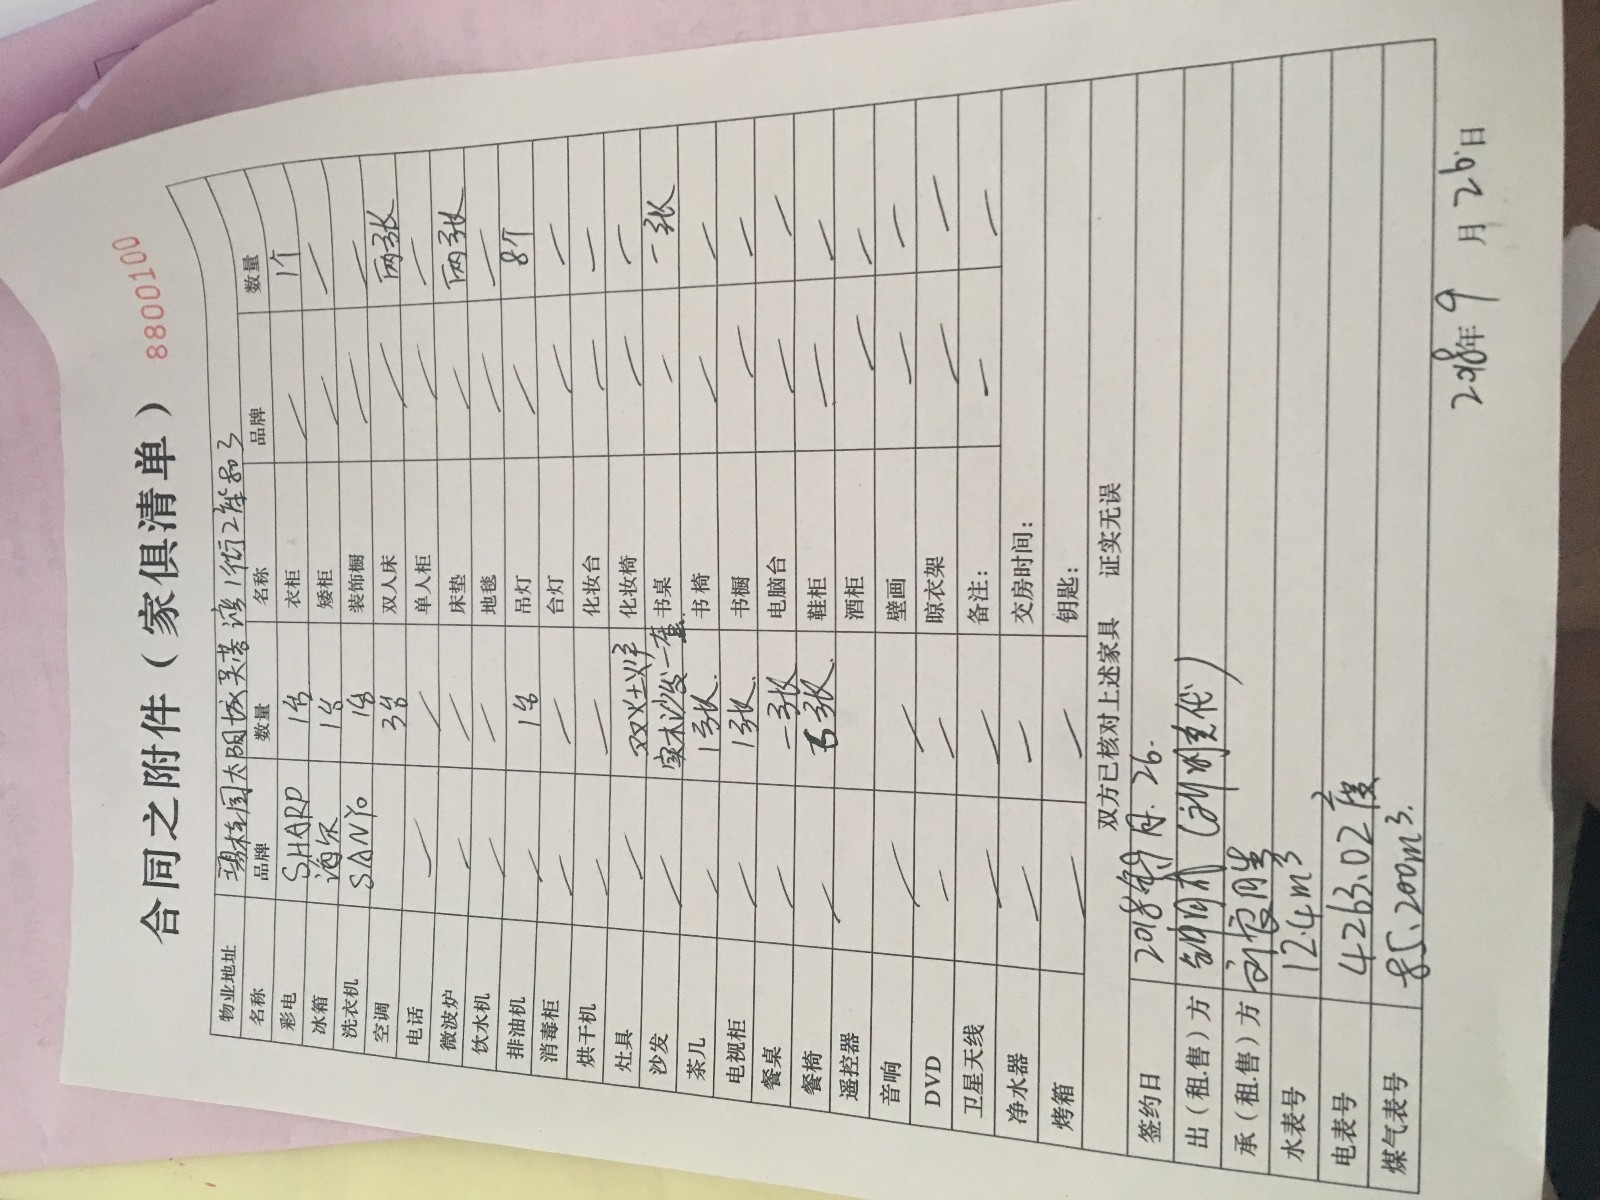 合同之附件（家俱清单） 8800100
物业地址 碧桂园太阳城芙蓉湾1街2座803
名称 品牌 数量 名称 品牌 数量
彩电 SHARP 1台 衣柜 / 1个
冰箱 海尔 1台 矮柜 / /
洗衣机 SANYO 1台 装饰橱 / /
空调 3台 双人床 / 两张
电话 / / 单人柜 / /
微波炉 / / 床垫 / 两张
饮水机 / / 地毯 / /
排油机 / 1台 吊灯 / 8个
消毒柜 / / 台灯 / /
烘干机 / / 化妆台 / /
灶具 / 双灶 化妆椅 / /
沙发 / 实木沙发一套 书桌 / 一张
茶几 / 1张. 书椅 / /
电视柜 / 1张. 书橱 / /
餐桌 / 一张 电脑台 / /
餐椅 / 5张. 鞋柜 / /
遥控器 酒柜 / /
音响 / / 壁画 / /
DVD / / 晾衣架 / /
卫星天线 / / 备注： / /
净水器 / / 交房时间：
烤箱 / / 钥匙：
双方已核对上述家具 证实无误
签约日 2018年9月.26.
出（租.售）方
承（租.售）方
水表号 12.4m³
电表号 4263.02度
煤气表号 85.200m³.
2018年9月26.日